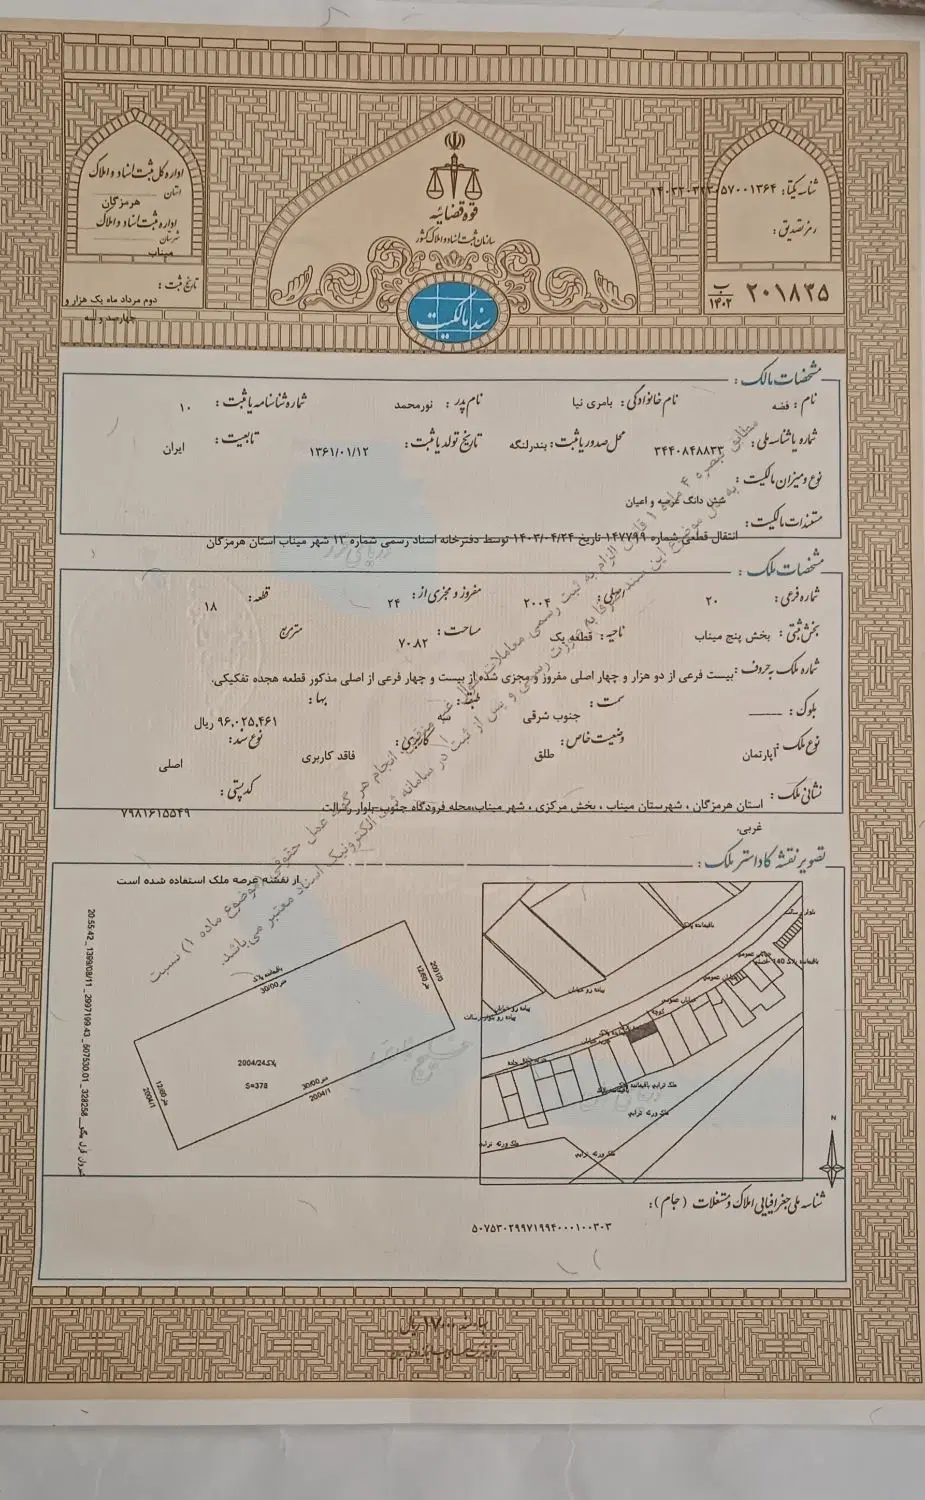 قوه قضائیه
سازمان ثبت اسناد و املاک کشور
سند مالکیت
اداره کل ثبت اسناد و املاک
استان
هرمزگان
اداره ثبت اسناد و املاک
شهرستان
میناب
تاریخ ثبت :
دوم مرداد ماه یک هزار و
چهارصد و سه
شناسه یکتا:
رمز تصدیق :
۲۰۱۸۳۵ ب ۱۴۰۲
مشخصات مالک :
نام : فضه نام خانوادگی : بامری نیا نام پدر : نورمحمد شماره شناسنامه یا ثبت : ۱۰
شماره یا شناسه ملی : ۳۴۴۰۸۴۸۸۳۳ محل صدور یا ثبت : بندرلنگه تاریخ تولد یا ثبت : ۱۳۶۱/۰۱/۱۲ تابعیت : ایران
نوع و میزان مالکیت :
شش دانگ عرصه و اعیان
مستندات مالکیت :
انتقال قطعی شماره ۱۴۷۷۹۹ تاریخ ۱۴۰۳/۰۴/۲۴ توسط دفترخانه اسناد رسمی شماره ۱۳ شهر میناب استان هرمزگان
مشخصات ملک :
شماره فرعی : ۲۰ اصلی : ۲۰۰۴ مفروز و مجزی از : ۲۴ قطعه : ۱۸
بخش ثبتی : بخش پنج میناب ناحیه : قطعه یک مساحت : ۷۰.۸۲ مترمربع
شماره ملک به حروف : بیست فرعی از دو هزار و چهار اصلی مفروز و مجزی شده از بیست و چهار فرعی از اصلی مذکور قطعه هجده تفکیکی.
بلوک : سمت : جنوب شرقی طبقه : بها : ۹۶,۰۲۵,۴۶۱ ریال
نوع ملک : آپارتمان وضعیت خاص : طلق کاربری : فاقد کاربری نوع سند : اصلی
نشانی ملک :
استان هرمزگان ، شهرستان میناب ، بخش مرکزی ، شهر میناب،محله فرودگاه جنوب-بلوار رسالت
غربی.
کد پستی : ۷۹۸۱۶۱۵۵۴۹
مطابق تبصره ۴ ماده ۱ قانون الزام به ثبت رسمی معاملات اموال غیر منقول، انجام هر گونه عمل حقوقی (موضوع ماده ۱) نسبت
به ملک موضوع این سند صرفا به صورت رسمی و پس از ثبت در سامانه ثبت الکترونیک اسناد معتبر می‌باشد.
تصویر نقشه کاداستر ملک :
از نقشه عرصه ملک استفاده شده است
باقیمانده پلاک
30/00 متر
2091/0
12/60 متر
پلاک 2004/24
S=378
30/00 متر
2004/1
12/60 متر
2004/1
20:55:42 _ 1399/08/11 _ 2997199.43 _ 507530.01 _ 328256
N
شناسه ملی جغرافیایی املاک و مستغلات (جام) :
۵۰۷۵۳۰۲۹۹۷۱۹۹۴۰۰۰۱۰۰۳۰۳